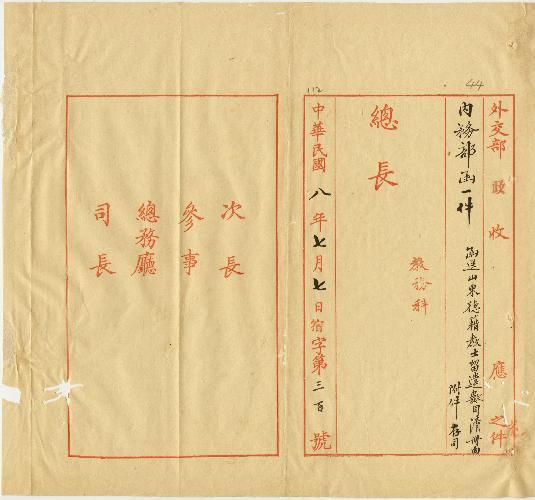 44
112
外交部 政 收 應 之件
內務部函一件 函送山東德籍教士留遣數目清冊由
附件存司
教務科
總長
中華民國八年七月七日宿字第三百號
次長
參事
總務廳
司長